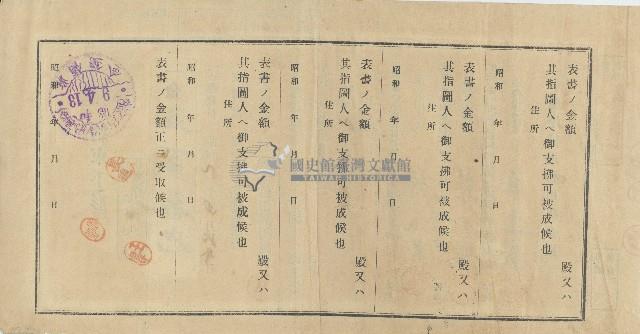 表書ノ金額　殿又ハ
其指圖人ヘ御支拂可被成候也
住所
昭和　年　月　日
表書ノ金額　殿又ハ
其指圖人ヘ御支拂可被成候也
住所
昭和　年　月　日
表書ノ金額　殿又ハ
其指圖人ヘ御支拂可被成候也
住所
昭和　年　月　日
表書ノ金額　殿又ハ
其指圖人ヘ御支拂可被成候也
住所
昭和　年　月　日
表書ノ金額正ニ受取候也
昭和　年　月　日
9.4.13
國史館臺灣文獻館
TAIWAN HISTORICA